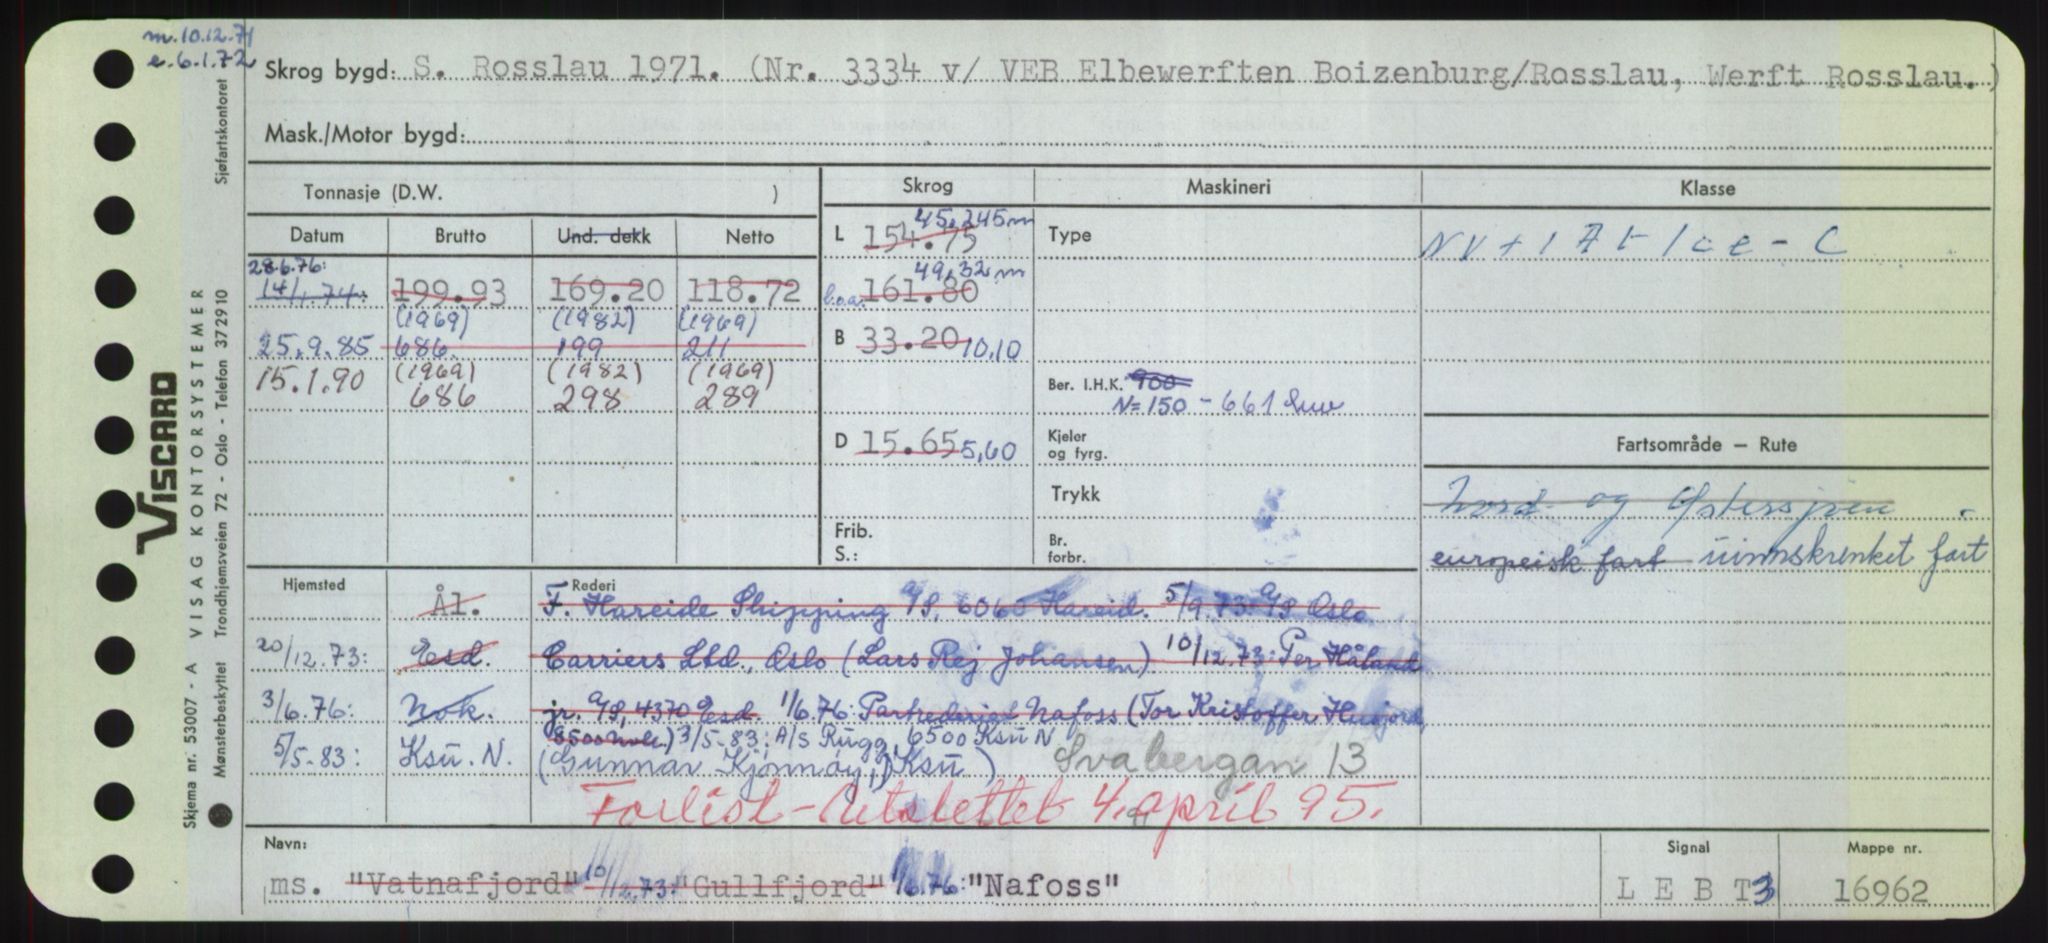 m.10.12.71
e.6.1.72
Skrog bygd: S. Rosslau 1971. (Nr. 3334 v/ VEB Elbewerften Boizenburg/Rosslau, Werft Rosslau.)
Mask./Motor bygd:
Tonnasje (D.W. )
Skrog
Maskineri
Klasse
Datum
Brutto
Und. dekk
Netto
28.6.76:
14/1.74:
199.93
169.20
118.72
(1969)
(1982)
(1969)
25.9.85
686
199
211
15.1.90
(1969)
(1982)
(1969)
686
298
289
L 154.75 45,245m
l.o.a. 161.80 49,32m
B 33.20 10,10
D 15.65 5,60
Frib.
S.:
Type
Ber. I.H.K. 900
N=150 - 661
Kjeler
og fyrg.
Trykk
Br.
forbr.
NV + 1 A1- Ice - C
Fartsområde – Rute
Nord- og Østersjøen
europeisk fart uinnskrenket fart
Hjemsted
Rederi
Ål.
F. Hareide Shipping A/S, 6060 Hareid. 5/9.73: A/S Oslo
20/12.73: Esd. Carriers Ltd., Oslo (Lars Rej Johansen) 10/12.73: Per Håland
3/6.76: Nok. jr. A/S, 4370 Esd. 1/6.76: Partrederiet Nafoss (Tor Kristoffer Husjord,
) 3/5-83: A/S Rugg, 6500 Ksu N
5/5-83: Ksu. N. (Gunnar Kjønnøy,) Ksu ) Svabergan 13
Forlist - Utslettet 4. april 95.
Navn:
ms. "Vatnafjord" 10/12.73: "Gullfjord" 1/6.76: "Nafoss"
Signal
L E B T 3
Mappe nr.
16962
VISCARD
Skjema nr. 53007 - A VISAG KONTORSYSTEMER
Mønsterbeskyttet Trondhjemsveien 72 - Oslo - Telefon 372910 Sjøfartskontoret